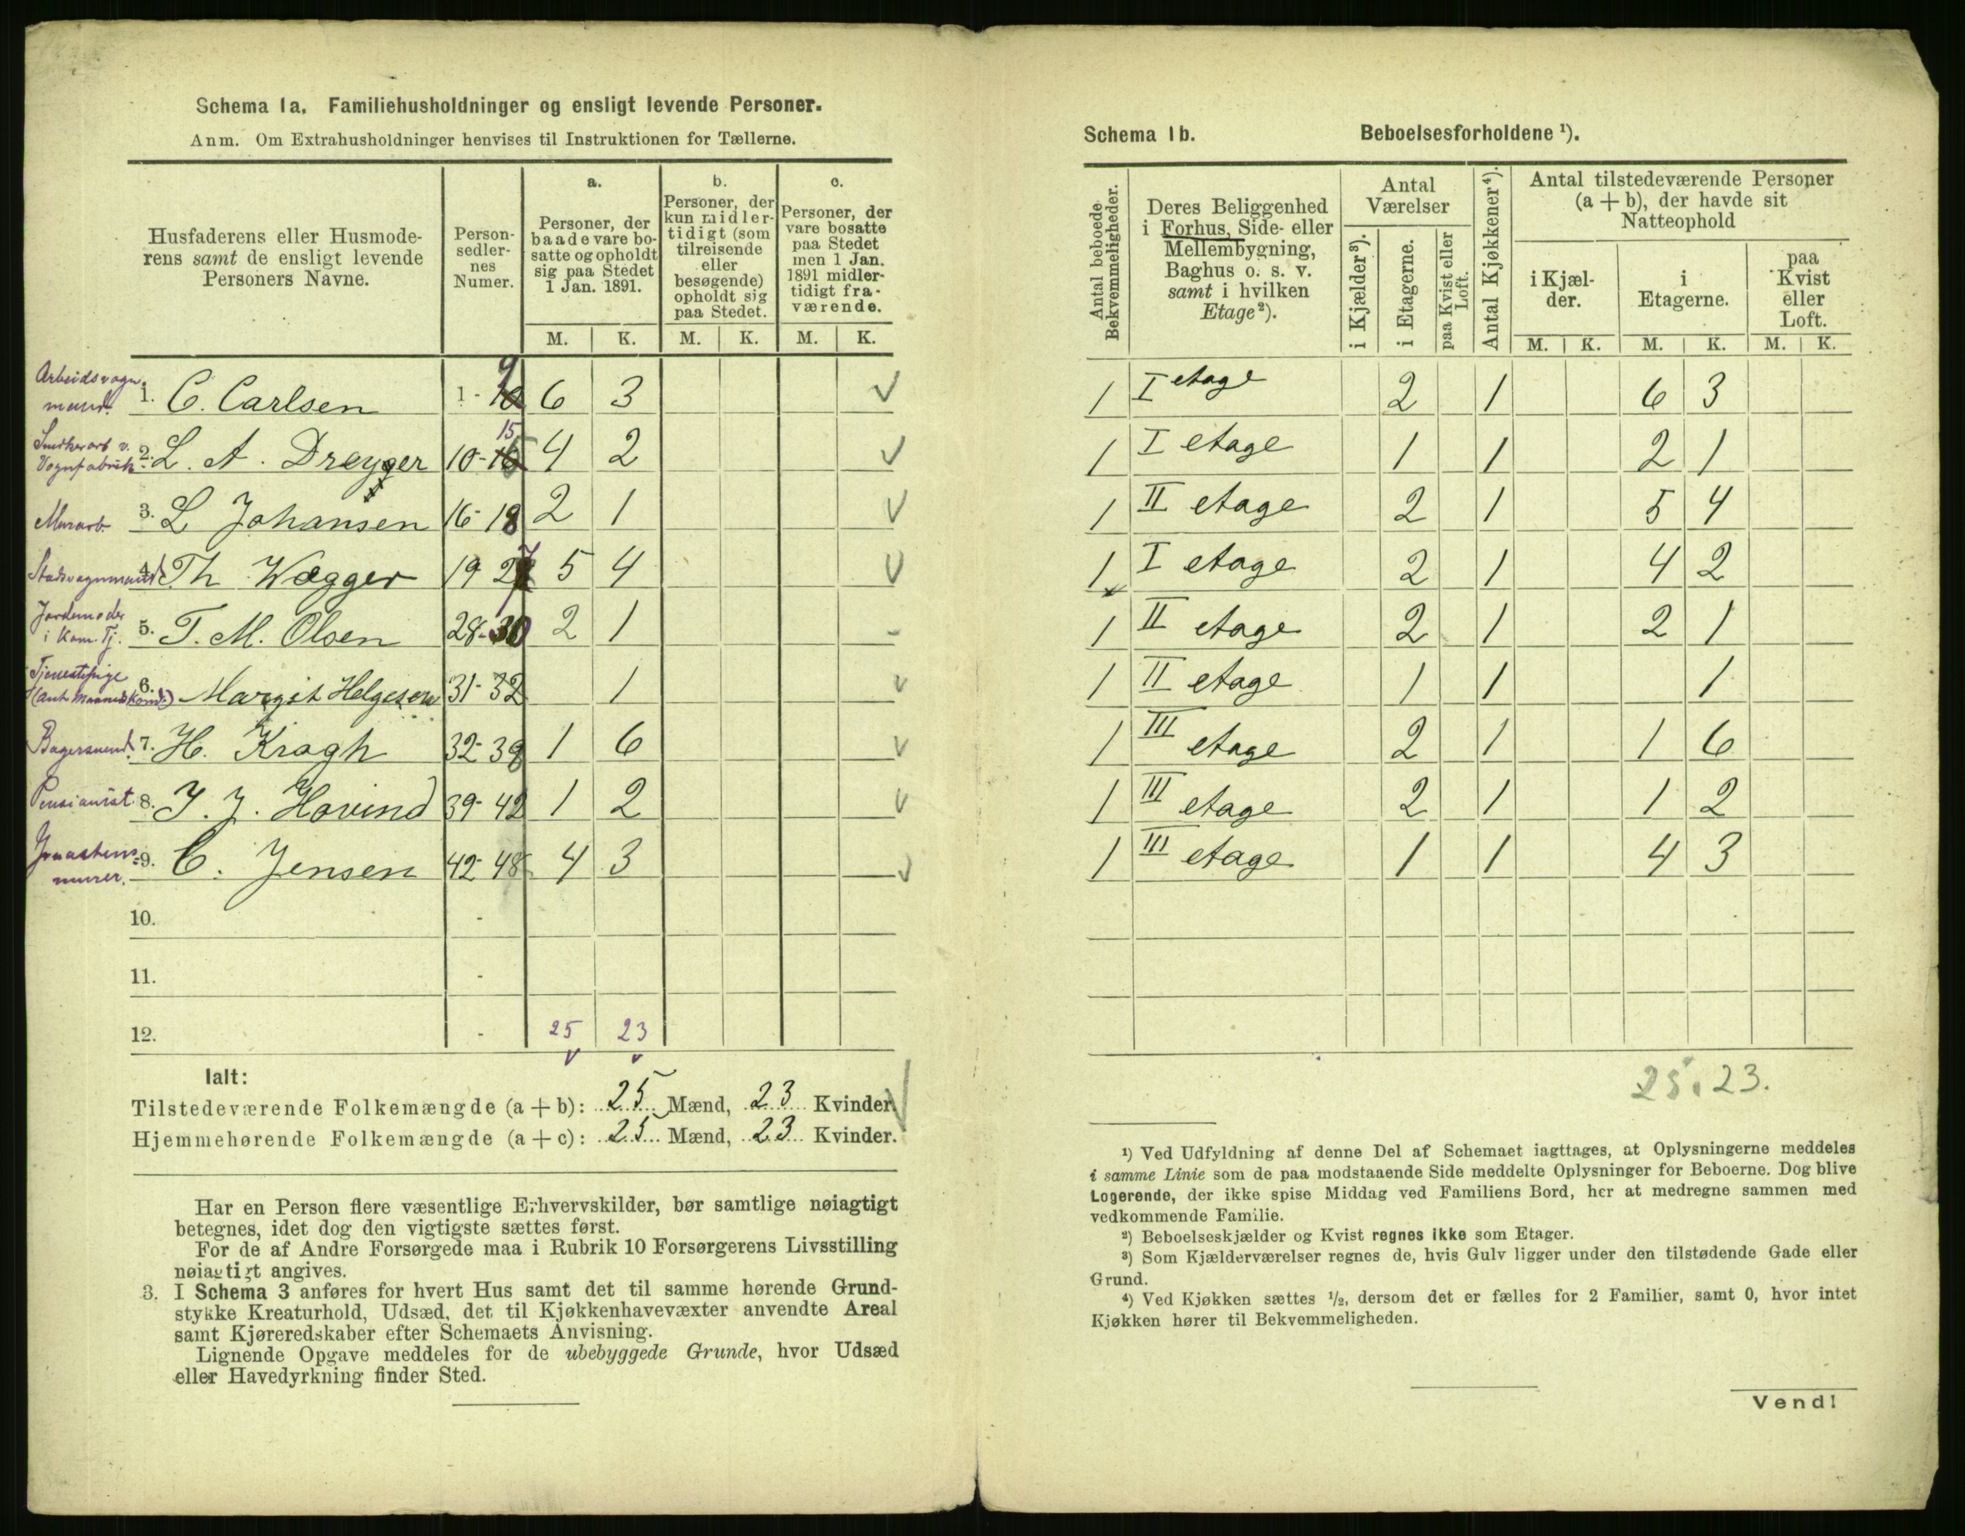 Schema 1a. Familiehusholdninger og ensligt levende Personer.
Anm. Om Extrahusholdninger henvises til Instruktionen for Tællerne.
Husfaderens eller Husmoderens samt de ensligt levende Personers Navne.
Person-sedler-nes Numer.
a.
Personer, der baade vare bosatte og opholdt sig paa Stedet 1 Jan. 1891.
b.
Personer, der kun midlertidigt (som tilreisende eller besøgende) opholdt sig paa Stedet.
c.
Personer, der vare bosatte paa Stedet men 1 Jan. 1891 midlertidigt fraværende.
M. K. M. K. M. K.
Arbeidsvognmand. 1. C. Carlsen 1 - 9 6 3
Snedkerarb v. Vognfabrik 2. L. A. Dreyger 10-15 4 2
Murarb. 3. L Johansen 16-18 2 1
Stadsvognmand 4. Th Wægger 19 27 5 4
Jordemoder i Kom. Tj. 5. T. M. Olsen 28-30 2 1
Tjenestepige 6. Margit Helgesen 31-32 1
Bagersvend. 7. H. Kragh 32-38 1 6
Pensionist. 8. J. J. Hovind 39-42 1 2
9. C. Jensen 42-48 4 3
murer.
10. -
11. -
12. - 25 23
Ialt:
Tilstedeværende Folkemængde (a + b): 25 Mænd, 23 Kvinder.
Hjemmehørende Folkemængde (a + c): 25 Mænd, 23 Kvinder.
Har en Person flere væsentlige Erhvervskilder, bør samtlige nøiagtigt
betegnes, idet dog den vigtigste sættes først.
For de af Andre Forsørgede maa i Rubrik 10 Forsørgerens Livsstilling
nøiagtigt angives.
3. I Schema 3 anføres for hvert Hus samt det til samme hørende Grund-
stykke Kreaturhold, Udsæd, det til Kjøkkenhavevæxter anvendte Areal
samt Kjøreredskaber efter Schemaets Anvisning.
Lignende Opgave meddeles for de ubebyggede Grunde, hvor Udsæd
eller Havedyrkning finder Sted.
Schema 1b. Beboelsesforholdene ¹).
Antal beboede Bekvemmeligheder.
Deres Beliggenhed i Forhus, Side- eller Mellembygning, Baghus o. s. v. samt i hvilken Etage²).
Antal Værelser
i Kjælder³).
i Etagerne.
paa Kvist eller Loft.
Antal Kjøkkener⁴).
Antal tilstedeværende Personer (a + b), der havde sit Natteophold
i Kjælder.
i Etagerne.
paa Kvist eller Loft.
M. K. M. K. M. K.
1 I etage 2 1 6 3
1 I etage 1 1 2 1
1 II etage 2 1 5 4
1 I etage 2 1 4 2
1 II etage 2 1 2 1
1 II etage 1 1 1
1 III etage 2 1 1 6
1 III etage 2 1 1 2
1 III etage 1 1 4 3
25. 23.
¹) Ved Udfyldning af denne Del af Schemaet iagttages, at Oplysningerne meddeles
i samme Linie som de paa modstaaende Side meddelte Oplysninger for Beboerne. Dog blive
Logerende, der ikke spise Middag ved Familiens Bord, her at medregne sammen med
vedkommende Familie.
²) Beboelseskjælder og Kvist regnes ikke som Etager.
³) Som Kjælderværelser regnes de, hvis Gulv ligger under den tilstødende Gade eller
Grund.
⁴) Ved Kjøkken sættes ½, dersom det er fælles for 2 Familier, samt 0, hvor intet
Kjøkken hører til Bekvemmeligheden.
Vend!